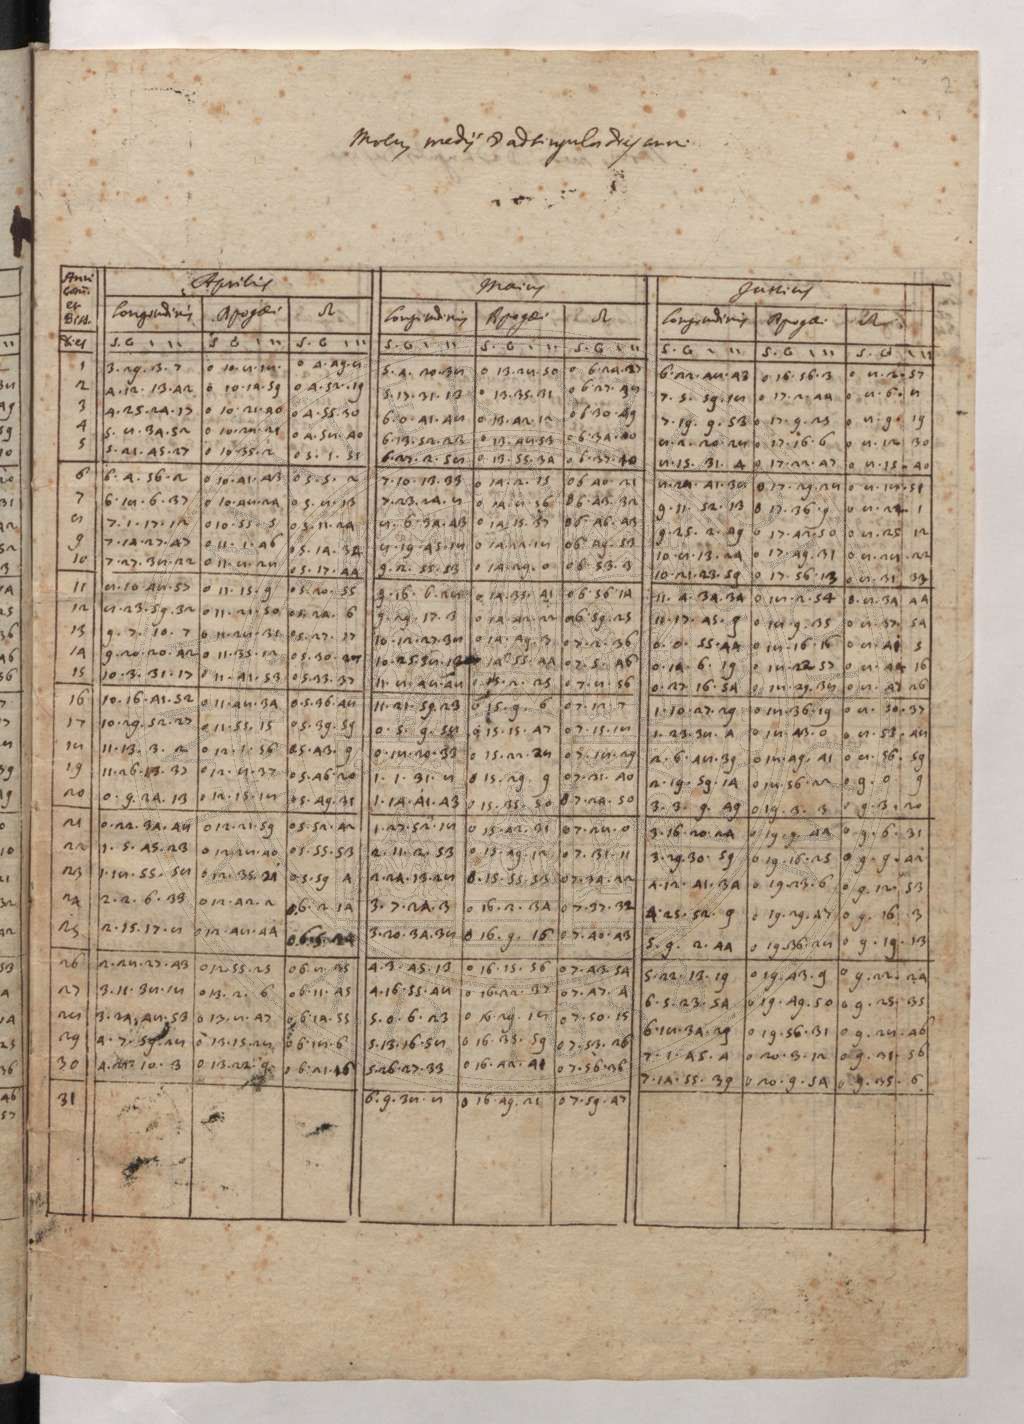 Motus medij ☽ ad singulos dies anni
Anni com. et Biss. Aprilis Maius Junius
Longitudinis Apogei ☊ Longitudinis Apogei ☊ Longitudinis Apogei ☊
Dies S. G ' '' S G ' '' S. G ' '' S. G ' '' S. G ' '' S. G ' '' S. G ' '' S. G ' '' S. G ' ''
1 3.29.3.7 0 10.8.18 0 4.49.8 5.4.20.38 0 13.28.50 0 6.24.27 6.22.48.43 0 16.56.3 0 8.2.57
2 4.12.13.42 0 10.14.59 0 4.52.19 5.17.31.13 0 13.35.31 0 6.27.38 7.5.59.18 0 17.2.44 0 8.6.8
3 4.25.24.17 0 10.21.40 0 4.55.30 6.0.41.48 0 13.42.12 0 6.30.49 7.19.9.53 0 17.9.25 0 8.9.19
4 5.8.34.52 0 10.28.21 0 4.58.40 6.13.52.23 0 13.48.53 0 6.34.00 8.2.20.28 0 17.16.6 0 8.12.30
5 5.21.45.27 0 10.35.2 0 5.1.51 6.27.2.58 0 13.55.34 0 6.37.10 8.15.31.4 0 17.22.47 0 8.15.40
6 6.4.56.2 0 10.41.43 0 5.5.2 7.10.13.33 0 14.2.15 0 6.40.21 8.28.41.38 0 17.29.28 0 8.18.51
7 6.18.6.37 0 10.48.24 0 5.8.13 7.23.24.8 0 14.8.56 0 6.43.32 9.11.52.13 0 17.36.9 0 8.22.1
8 7.1.17.12 0 10.55.5 0 5.11.24 8.6.34.43 0 14.15.37 0 6.46.43 9.25.2.49 0 17.42.50 0 8.25.12
9 7.14.27.47 0 11.1.46 0 5.14.34 8.19.45.18 0 14.22.18 0 6.49.53 10.8.13.24 0 17.49.31 0 8.28.22
10 7.27.38.22 0 11.8.28 0 5.17.44 9.2.55.53 0 14.29.0 0 6.53.3 10.21.23.59 0 17.56.13 0 8.31.33
11 8.10.48.57 0 11.15.9 0 5.20.55 9.16.6.28 0 14.35.41 0 6.56.14 11.4.34.34 0 18.2.54 0 8.34.44
12 8.23.59.32 0 11.21.50 0 5.24.6 9.29.17.3 0 14.42.22 0 6.59.25 11.17.45.9 0 18.9.35 0 8.37.54
13 9.7.10.7 0 11.28.31 0 5.27.17 10.12.27.38 0 14.49.3 0 7.2.36 0.0.55.44 0 18.16.16 0 8.41.5
14 9.20.20.42 0 11.35.12 0 5.30.27 10.25.38.13 0 14.55.44 0 7.5.46 0.14.6.19 0 18.22.57 0 8.44.16
15 10.3.31.17 0 11.41.53 0 5.33.37 11.8.48.48 0 15.2.25 0 7.8.56 0.27.16.54 0 18.29.38 0 8.47.26
16 10.16.41.52 0 11.48.34 0 5.36.48 11.21.59.23 0 15.9.6 0 7.12.7 1.10.27.29 0 18.36.19 0 8.50.37
17 10.29.52.27 0 11.55.15 0 5.39.59 0.5.9.58 0 15.15.47 0 7.15.18 1.23.38.4 0 18.43.0 0 8.53.48
18 11.13.3.2 0 12.1.56 0 5.43.9 0.18.20.33 0 15.22.28 0 7.18.29 2.6.48.39 0 18.49.41 0 8.56.59
19 11.26.13.37 0 12.8.37 0 5.46.20 1.1.31.8 0 15.29.9 0 7.21.40 2.19.59.14 0 18.56.22 0 9.0.9
20 0.9.24.13 0 12.15.18 0 5.49.31 1.14.41.43 0 15.35.50 0 7.24.50 3.3.9.49 0 19.3.3 0 9.3.20
21 0.22.34.48 0 12.21.59 0 5.52.42 1.27.52.18 0 15.42.31 0 7.28.0 3.16.20.24 0 19.9.44 0 9.6.31
22 1.5.45.23 0 12.28.40 0 5.55.53 2.11.2.53 0 15.49.12 0 7.31.11 3.29.30.59 0 19.16.25 0 9.9.42
23 1.18.55.58 0 12.35.21 0 5.59.4 2.24.13.28 0 15.55.53 0 7.34.22 4.12.41.34 0 19.23.6 0 9.12.53
24 2.2.6.33 0 12.42.2 0 6.2.14 3.7.24.3 0 16.2.34 0 7.37.32 4.25.52.9 0 19.29.47 0 9.16.3
25 2.15.17.8 0 12.48.44 0 6.5.24 3.20.34.38 0 16.9.16 0 7.40.43 5.9.2.44 0 19.36.28 0 9.19.13
26 2.28.27.43 0 12.55.25 0 6.8.35 4.3.45.13 0 16.15.56 0 7.43.54 5.22.13.19 0 19.43.9 0 9.22.24
27 3.11.38.18 0 13.2.6 0 6.11.45 4.16.55.48 0 16.22.37 0 7.47.4 6.5.23.54 0 19.49.50 0 9.25.35
28 3.24.48.53 0 13.8.47 0 6.14.55 5.0.6.23 0 16.29.18 0 7.50.15 6.18.34.29 0 19.56.31 0 9.28.46
29 4.7.59.28 0 13.15.28 0 6.18.6 5.13.16.58 0 16.35.59 0 7.53.26 7.1.45.4 0 20.3.12 0 9.31.56
30 4.21.10.3 0 13.22.9 0 6.21.16 5.26.27.33 0 16.42.41 0 7.56.36 7.14.55.39 0 20.9.54 0 9.35.6
31 6.9.38.8 0 16.49.21 0 7.59.47